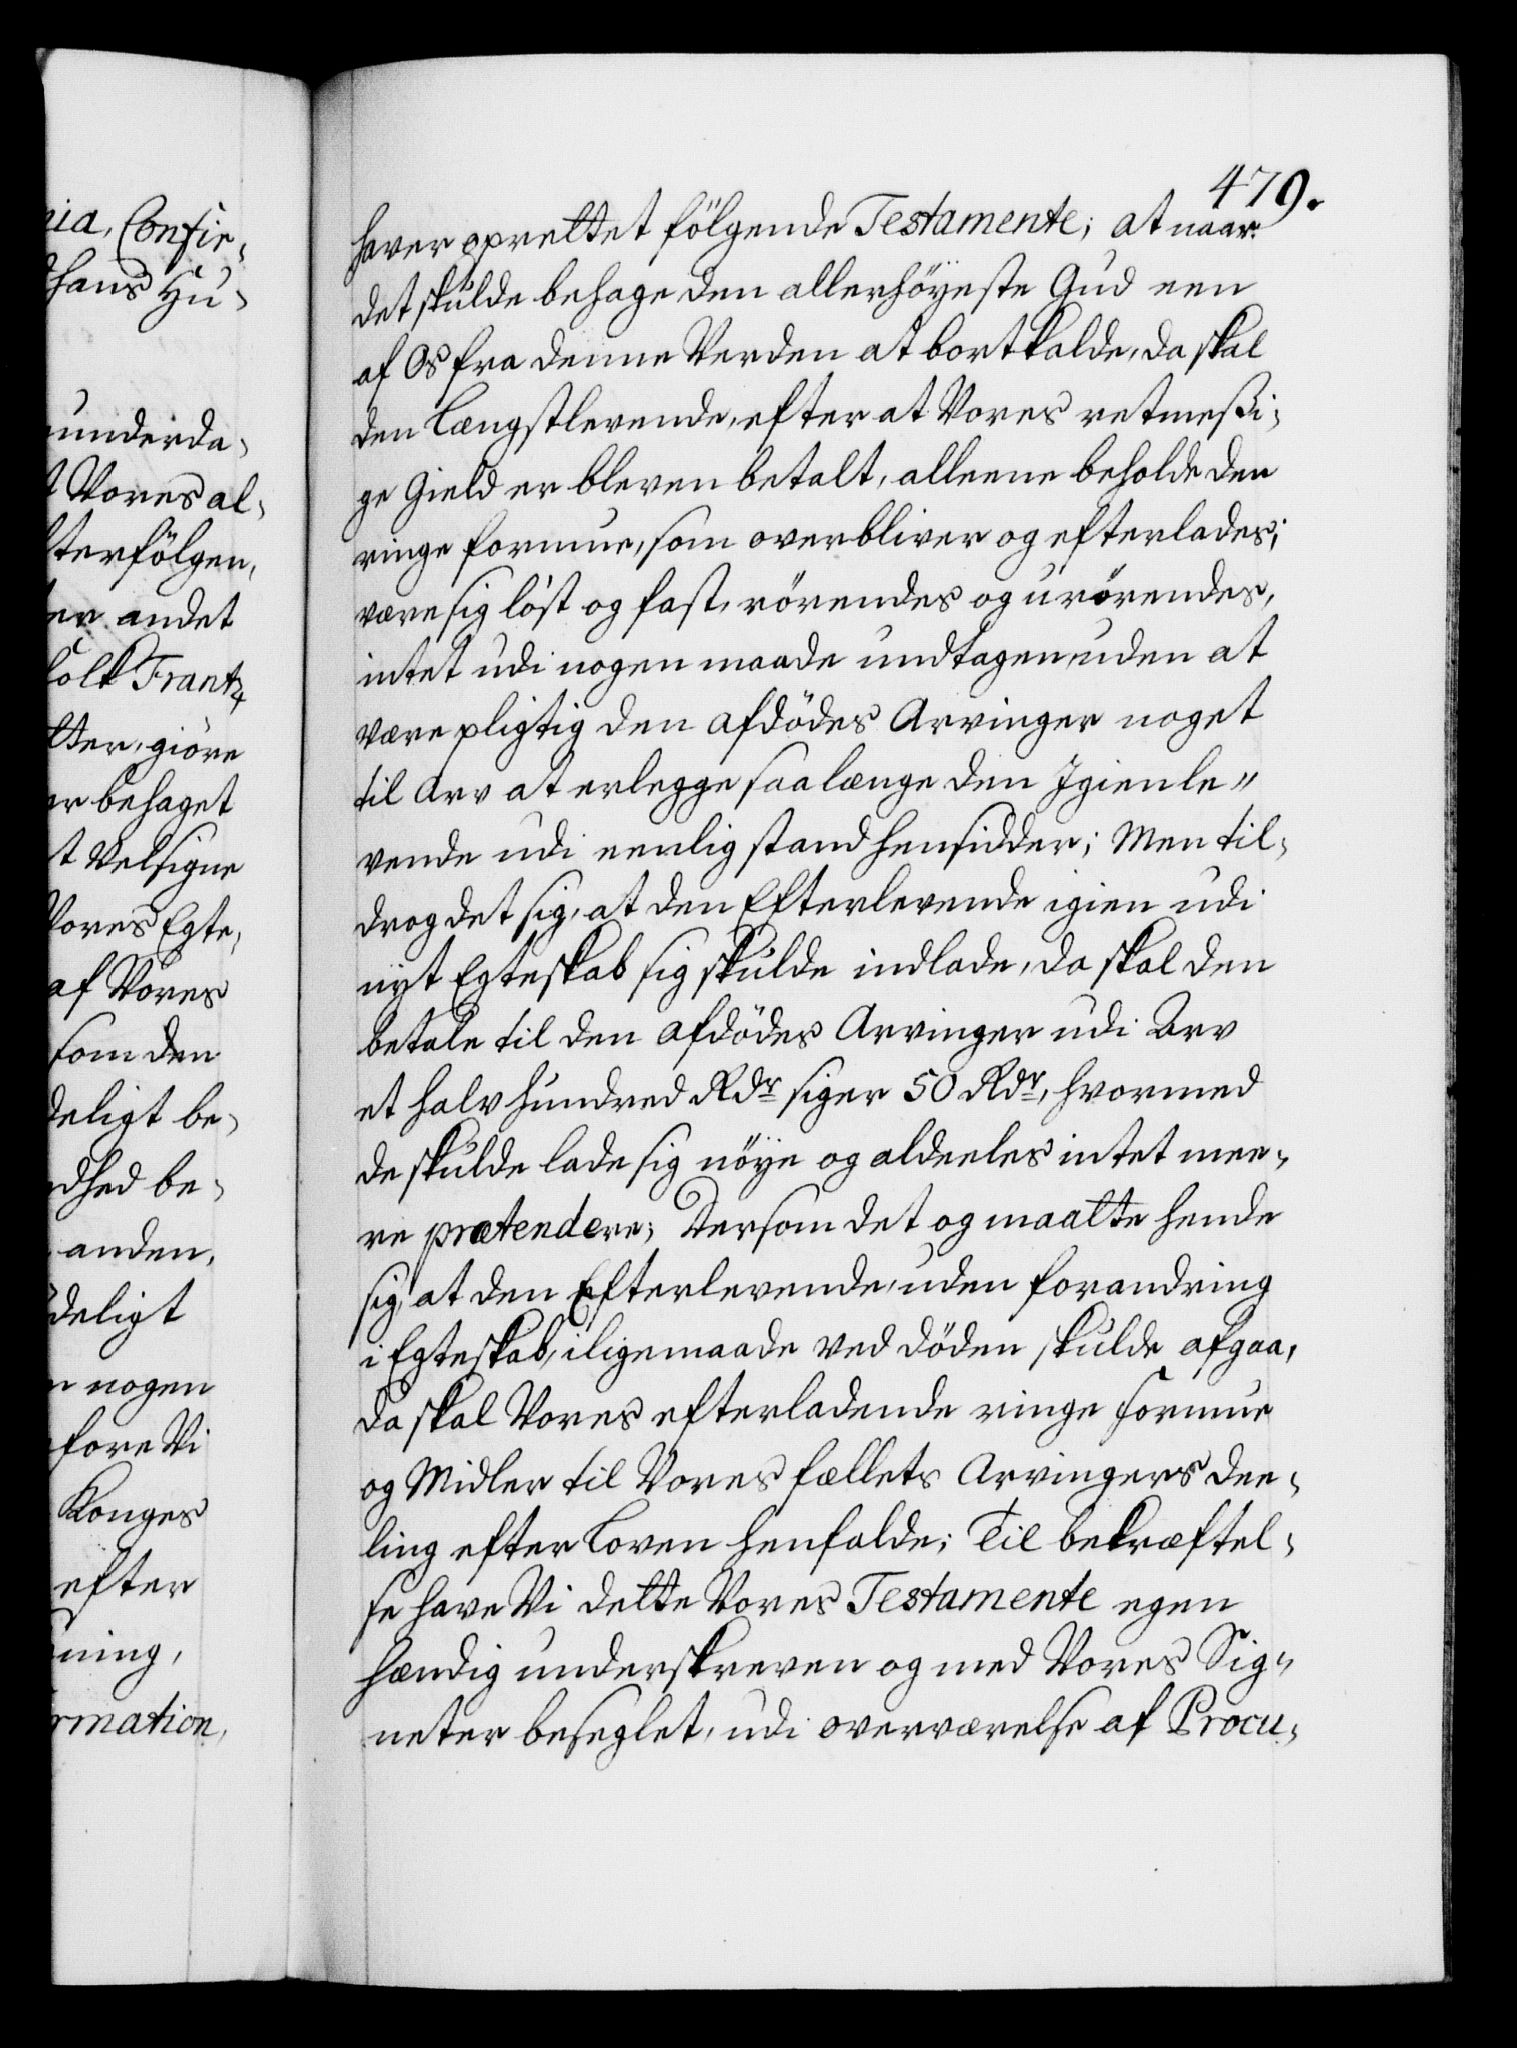 nia, Confir-
hans Hu-
underda-
t Vores al-
fterfölgen,
er andet
Folk Frantz
tter, giöre
er behaget
t Velsigne
Vores Egte,
af Vores
som den
deligt be-
dhed be-
anden,
deligt
n nogen
fore Vi
Konges
efter
ning,
rmation,
479.
haver oprettet fölgende Testamente; at naar
det skulde behage den allerhöyeste Gud een
af Os fra denne Verden at bortkalde, da skal
den Længstlevende, efter at Vores retmeßi-
ge Gield er bleven betalt, alleene beholde den
ringe formue, som overbliver og efterlades;
være sig löst og fast, rörendes og urörendes,
intet udi nogen maade undtagen, uden at
være pligtig den afdödes Arvinger noget
til Arv at erlegge saa længe den Igienle"
vende udi eenlig stand hensidder; Men til-
drog det sig, at den Efterlevende igien udi
nyt Egteskab sig skulde indlade, da skal den
betale til den afdödes Arvinger udi Arv
et halv hundred Rdr siger 50 Rdr, hvormed
de skulde lade sig nöye og aldeeles intet mee-
re prætendere; Dersom det og maatte hende
sig, at den Efterlevende, uden forandring
i Egteskab, iligemaade ved döden skulde afgaa,
da skal Vores efterladende ringe formue
og Midler til Vores fællets Arvingers dee-
ling efter Loven henfalde; Til bekræftel-
se have Vi dette Vores Testamente egen
hændig underskreven og med Vores Sig"
neter beseglet, udi overværelse af Procu-